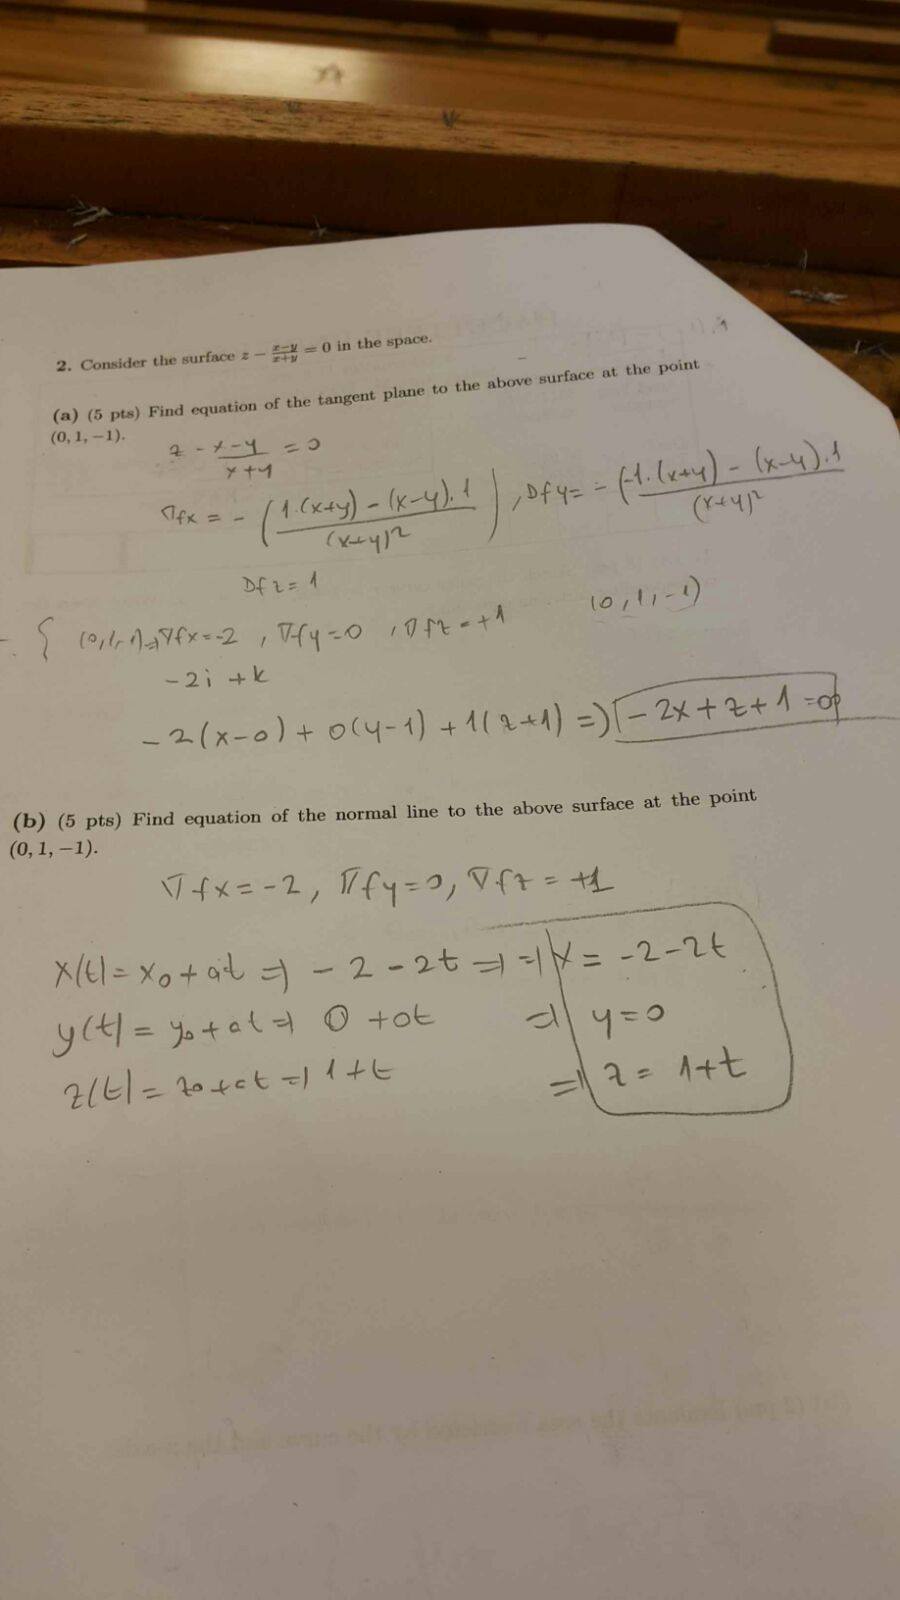 2. Consider the surface z − \frac{x−y}{x+y} = 0 in the space.
(a) (5 pts) Find equation of the tangent plane to the above surface at the point
(0, 1, −1).
z - \frac{x-y}{x+y} = 0
∇fx = - ( \frac{1.(x+y) - (x-y).1}{(x+y)^2} ) , Dfy= - (\frac{-1.(x+y) - (x-y).1}{(x+y)^2}
Dfz = 1
(0,1,-1)
(0,1,-1)⇒∇fx=-2 , ∇fy=0 , ∇fz=+1
-2i + k
-2(x-0) + 0(y-1) + 1(z+1) ⇒ -2x+z+1=0
(b) (5 pts) Find equation of the normal line to the above surface at the point
(0, 1, −1).
∇fx=-2, ∇fy=0, ∇fz=+1
x(t)= x0 + at ⇒ -2-2t ⇒ ⇒ x = -2-2t
y(t) = y0 + at ⇒ 0 + 0t ⇒ y=0
z(t)= z0 + ct ⇒ 1+t ⇒ z = 1+t